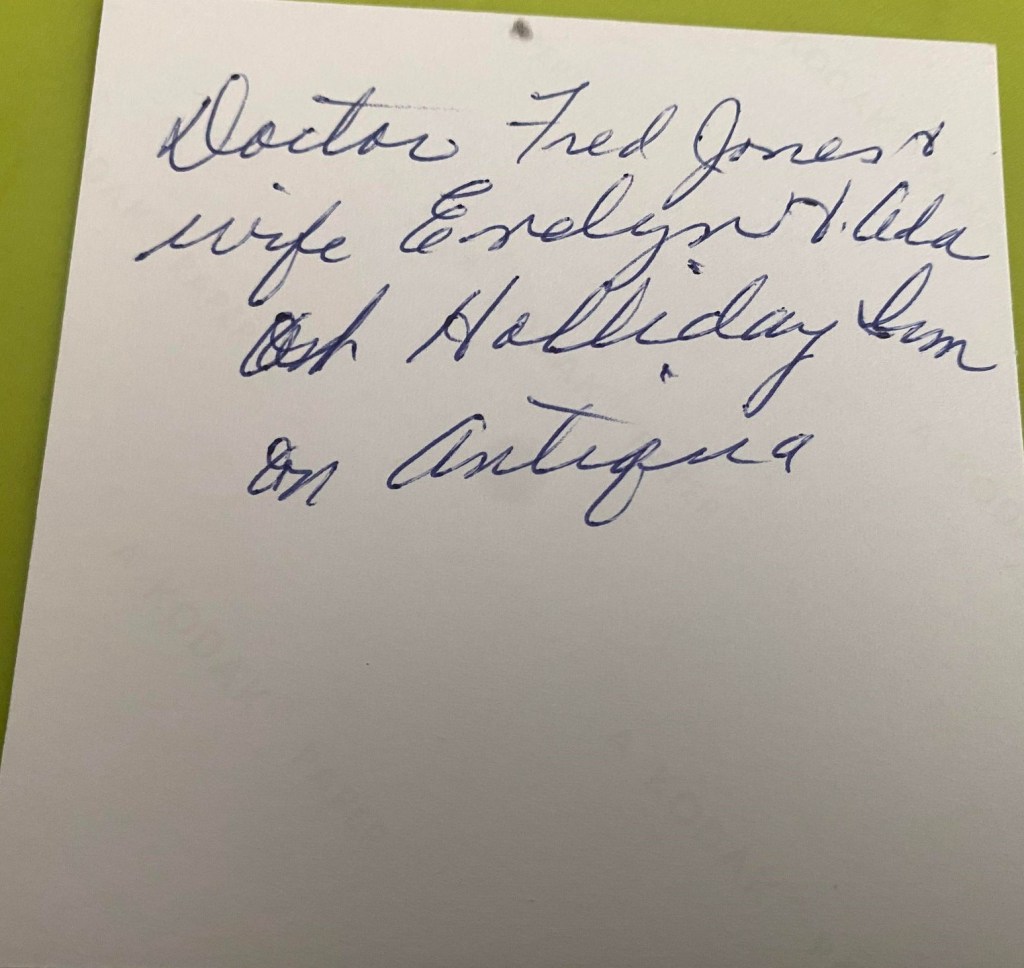 Doctor Fred Jones &
wife Evelyn & Ada
at Holliday Inn
on Antigua
KODAK